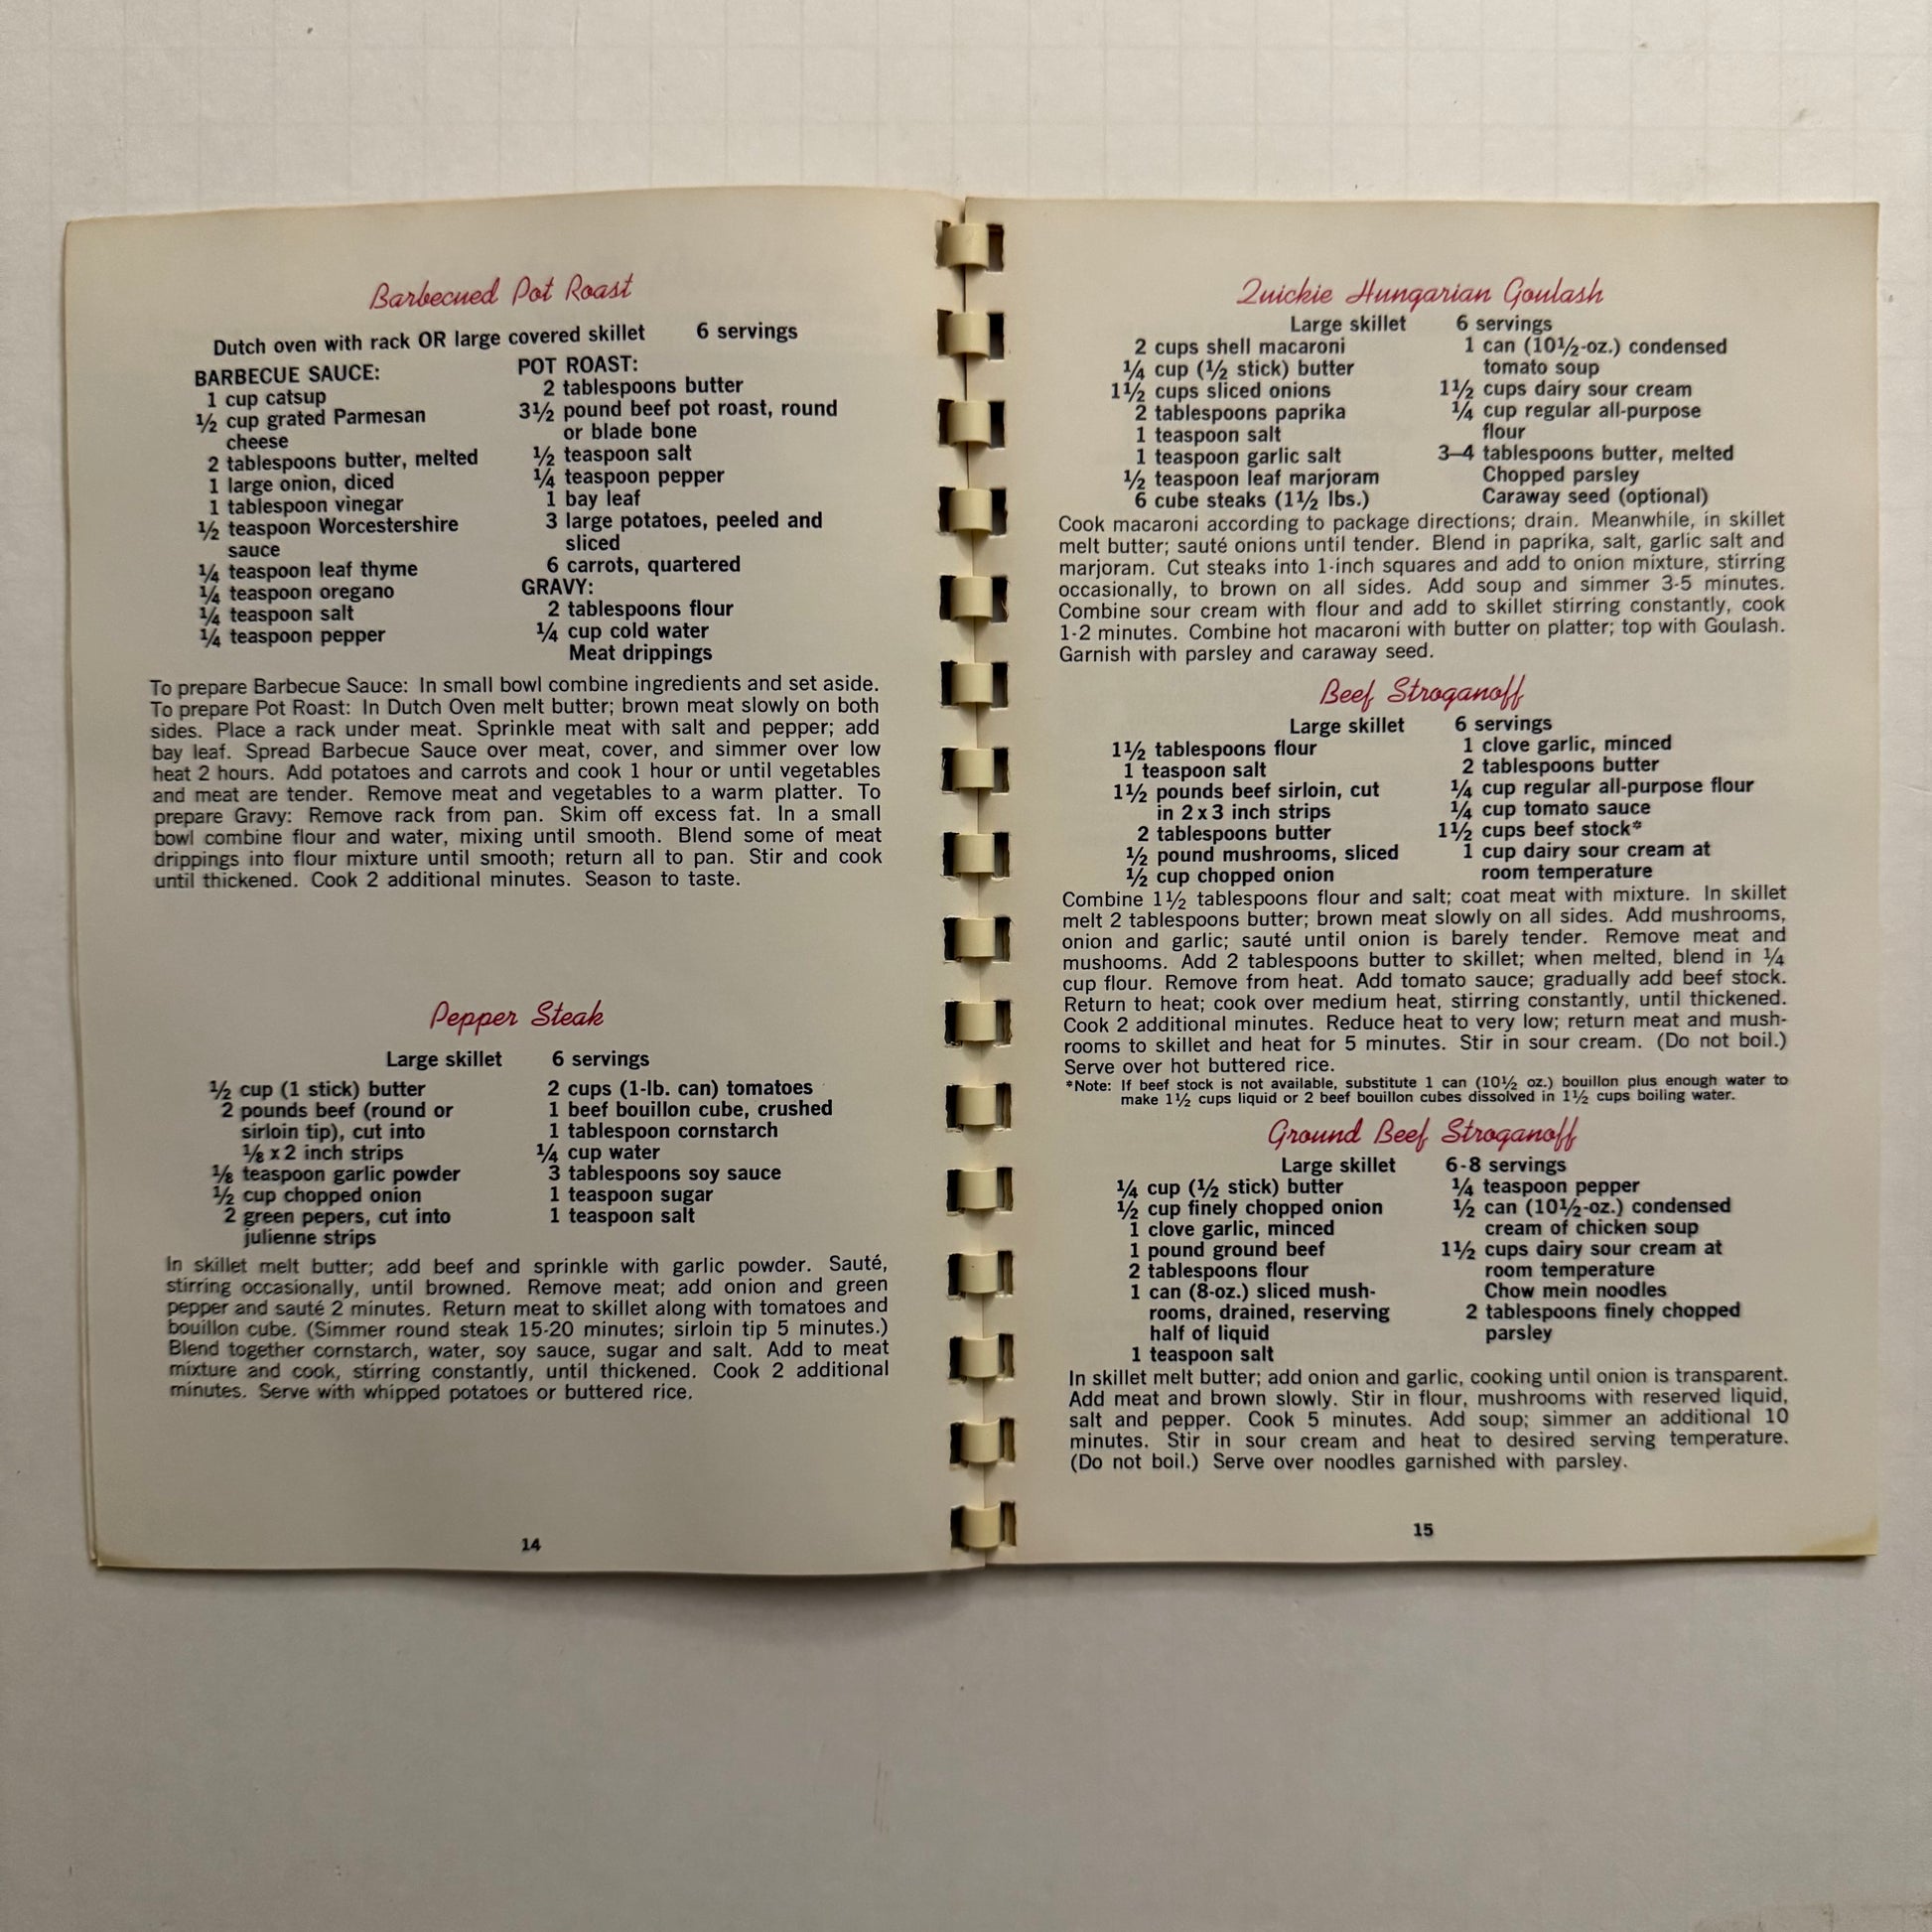 Barbecued Pot Roast
Dutch oven with rack OR large covered skillet 6 servings
BARBECUE SAUCE:
1 cup catsup
½ cup grated Parmesan
cheese
2 tablespoons butter, melted
1 large onion, diced
1 tablespoon vinegar
½ teaspoon Worcestershire
sauce
¼ teaspoon leaf thyme
¼ teaspoon oregano
¼ teaspoon salt
¼ teaspoon pepper
POT ROAST:
2 tablespoons butter
3½ pound beef pot roast, round
or blade bone
½ teaspoon salt
¼ teaspoon pepper
1 bay leaf
3 large potatoes, peeled and
sliced
6 carrots, quartered
GRAVY:
2 tablespoons flour
¼ cup cold water
Meat drippings
To prepare Barbecue Sauce: In small bowl combine ingredients and set aside.
To prepare Pot Roast: In Dutch Oven melt butter; brown meat slowly on both
sides. Place a rack under meat. Sprinkle meat with salt and pepper; add
bay leaf. Spread Barbecue Sauce over meat, cover, and simmer over low
heat 2 hours. Add potatoes and carrots and cook 1 hour or until vegetables
and meat are tender. Remove meat and vegetables to a warm platter. To
prepare Gravy: Remove rack from pan. Skim off excess fat. In a small
bowl combine flour and water, mixing until smooth. Blend some of meat
drippings into flour mixture until smooth; return all to pan. Stir and cook
until thickened. Cook 2 additional minutes. Season to taste.
Pepper Steak
Large skillet 6 servings
½ cup (1 stick) butter
2 pounds beef (round or
sirloin tip), cut into
⅛ x 2 inch strips
⅛ teaspoon garlic powder
½ cup chopped onion
2 green pepers, cut into
julienne strips
2 cups (1-lb. can) tomatoes
1 beef bouillon cube, crushed
1 tablespoon cornstarch
¼ cup water
3 tablespoons soy sauce
1 teaspoon sugar
1 teaspoon salt
In skillet melt butter; add beef and sprinkle with garlic powder. Sauté,
stirring occasionally, until browned. Remove meat; add onion and green
pepper and sauté 2 minutes. Return meat to skillet along with tomatoes and
bouillon cube. (Simmer round steak 15-20 minutes; sirloin tip 5 minutes.)
Blend together cornstarch, water, soy sauce, sugar and salt. Add to meat
mixture and cook, stirring constantly, until thickened. Cook 2 additional
minutes. Serve with whipped potatoes or buttered rice.
14
Quickie Hungarian Goulash
Large skillet 6 servings
2 cups shell macaroni
¼ cup (½ stick) butter
1½ cups sliced onions
2 tablespoons paprika
1 teaspoon salt
1 teaspoon garlic salt
½ teaspoon leaf marjoram
6 cube steaks (1½ lbs.)
1 can (10½-oz.) condensed
tomato soup
1½ cups dairy sour cream
¼ cup regular all-purpose
flour
3–4 tablespoons butter, melted
Chopped parsley
Caraway seed (optional)
Cook macaroni according to package directions; drain. Meanwhile, in skillet
melt butter; sauté onions until tender. Blend in paprika, salt, garlic salt and
marjoram. Cut steaks into 1-inch squares and add to onion mixture, stirring
occasionally, to brown on all sides. Add soup and simmer 3-5 minutes.
Combine sour cream with flour and add to skillet stirring constantly, cook
1-2 minutes. Combine hot macaroni with butter on platter; top with Goulash.
Garnish with parsley and caraway seed.
Beef Stroganoff
Large skillet 6 servings
1½ tablespoons flour
1 teaspoon salt
1½ pounds beef sirloin, cut
in 2 x 3 inch strips
2 tablespoons butter
½ pound mushrooms, sliced
½ cup chopped onion
1 clove garlic, minced
2 tablespoons butter
¼ cup regular all-purpose flour
¼ cup tomato sauce
1½ cups beef stock*
1 cup dairy sour cream at
room temperature
Combine 1½ tablespoons flour and salt; coat meat with mixture. In skillet
melt 2 tablespoons butter; brown meat slowly on all sides. Add mushrooms,
onion and garlic; sauté until onion is barely tender. Remove meat and
mushooms. Add 2 tablespoons butter to skillet; when melted, blend in ¼
cup flour. Remove from heat. Add tomato sauce; gradually add beef stock.
Return to heat; cook over medium heat, stirring constantly, until thickened.
Cook 2 additional minutes. Reduce heat to very low; return meat and mush-
rooms to skillet and heat for 5 minutes. Stir in sour cream. (Do not boil.)
Serve over hot buttered rice.
*Note: If beef stock is not available, substitute 1 can (10½ oz.) bouillon plus enough water to
make 1½ cups liquid or 2 beef bouillon cubes dissolved in 1½ cups boiling water.
Ground Beef Stroganoff
Large skillet 6-8 servings
¼ cup (½ stick) butter
½ cup finely chopped onion
1 clove garlic, minced
1 pound ground beef
2 tablespoons flour
1 can (8-oz.) sliced mush-
rooms, drained, reserving
half of liquid
1 teaspoon salt
¼ teaspoon pepper
½ can (10½-oz.) condensed
cream of chicken soup
1½ cups dairy sour cream at
room temperature
Chow mein noodles
2 tablespoons finely chopped
parsley
In skillet melt butter; add onion and garlic, cooking until onion is transparent.
Add meat and brown slowly. Stir in flour, mushrooms with reserved liquid,
salt and pepper. Cook 5 minutes. Add soup; simmer an additional 10
minutes. Stir in sour cream and heat to desired serving temperature.
(Do not boil.) Serve over noodles garnished with parsley.
15